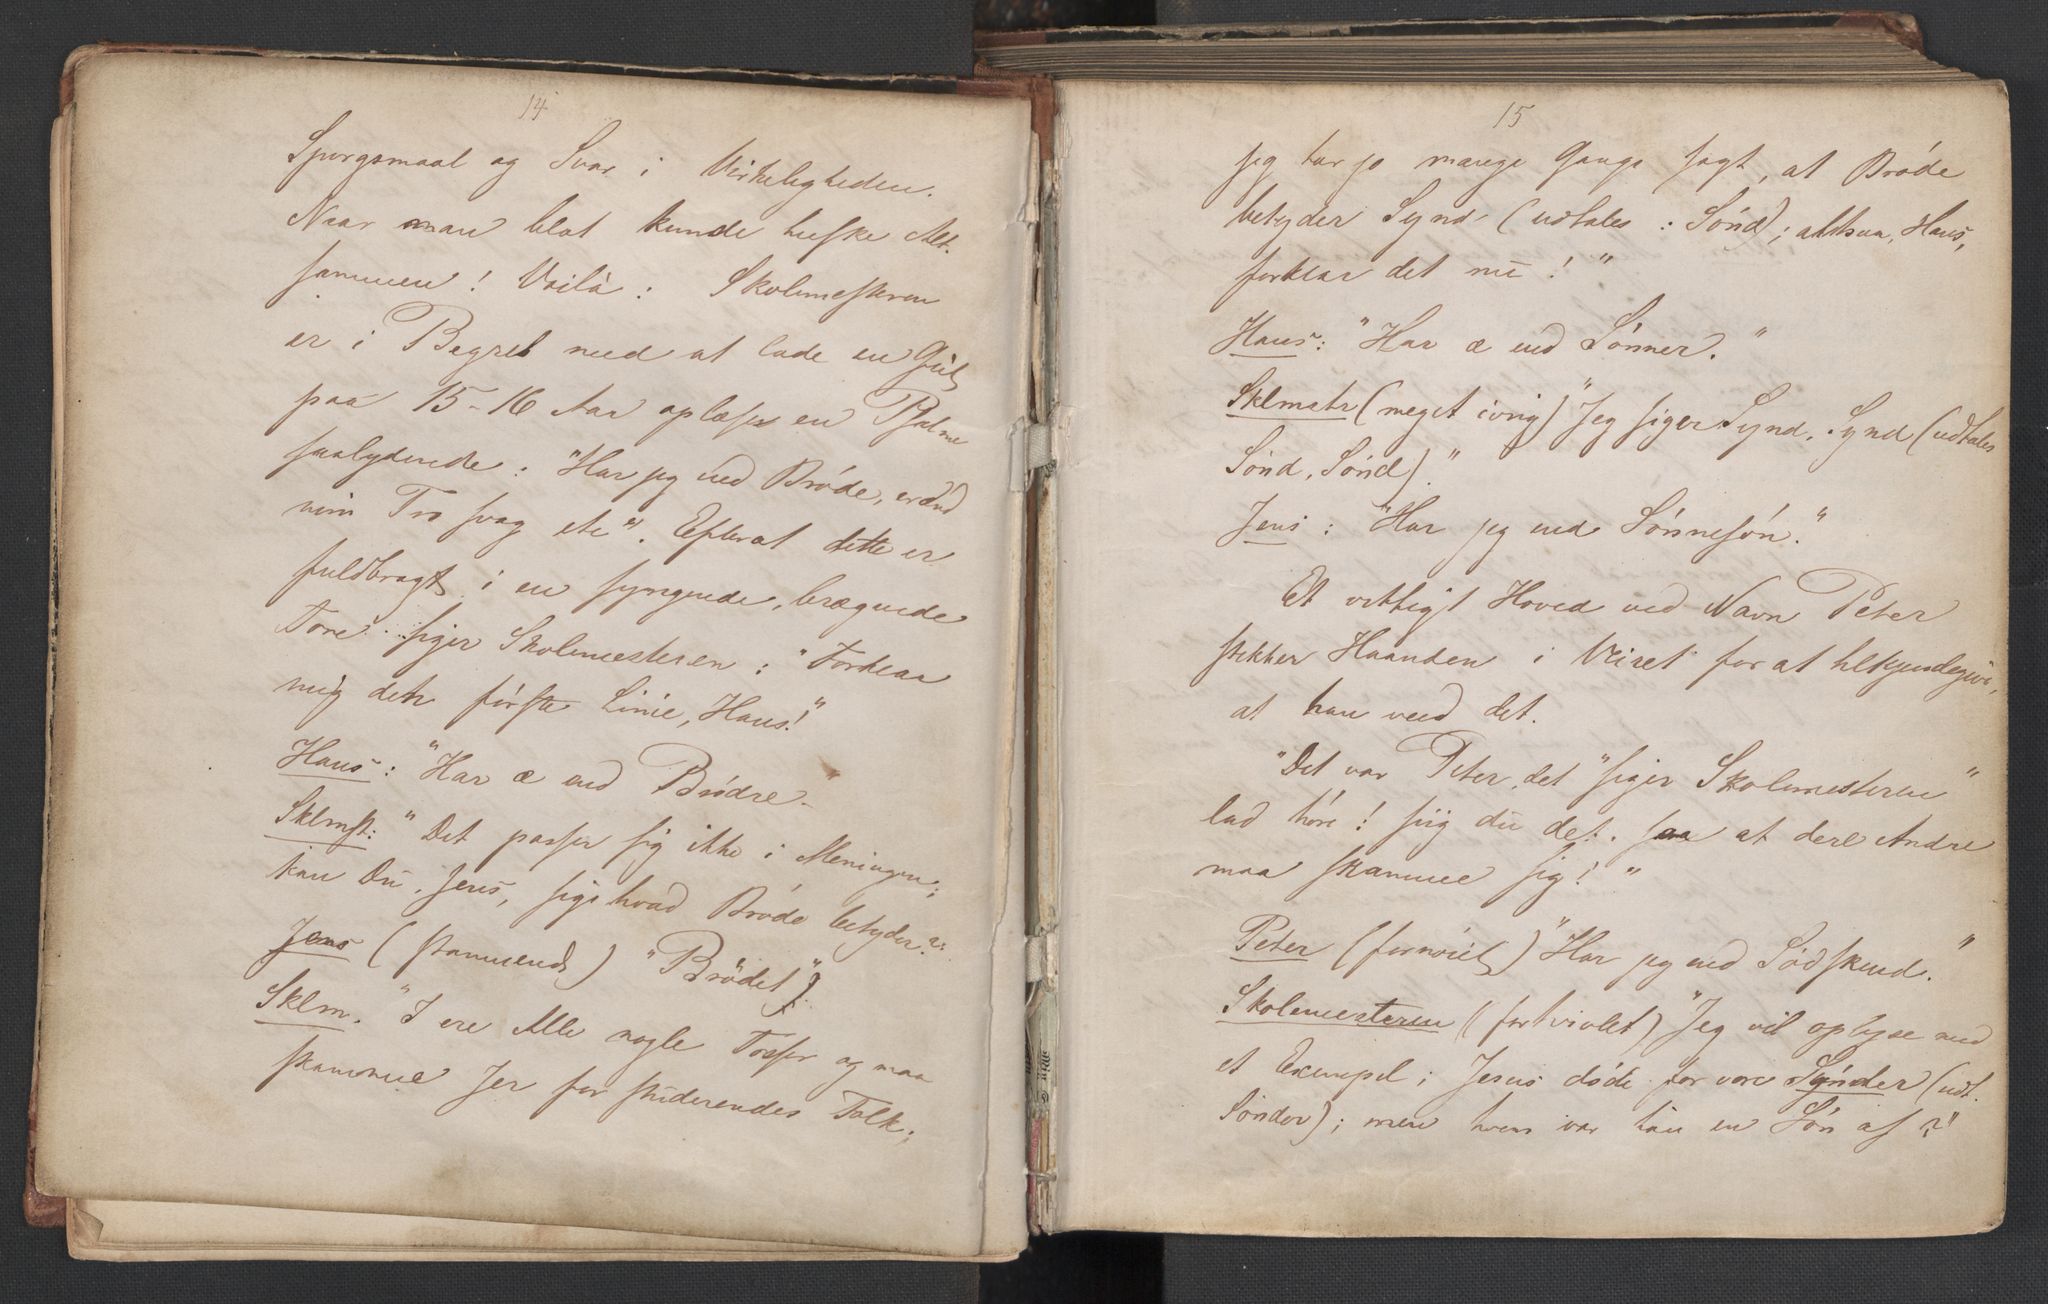 14
Spørgsmaal og Svar i Virkeligheden.
Naar man blot kunde huske Alt
sammen! Voilà: Skolemesteren
er i Begreb med at lade en Gut
paa 15-16 Aar oplæse en Psalme
saalydende: "Har jeg end Bröde, er end
min Tro svag etc". Efterat dette er
fuldbragt i en syngende, brægende
Tone siger Skolemesteren: "Forklar
mig den förste Linie, Hans!"
Hans: "Har æ end Brödre-
Sklmst: "Det passer sig ikke i Meningen;
kan Du, Jens, sige hvad Bröde betyder?"
Jens (stammende) "Brödet"?
Sklm. "I ere Alle nogle Tosser og maa
skamme Jer for studerendes Folk;
15
jeg har jo mange Gange sagt, at Bröde
betyder Synd (udtales: Sönd); altsaa, Hans,
forklar det nu!"
Hans: "Har æ end Sönner."
Sklmstr (meget ivrig) "Jeg siger Synd, Synd (udtales
Sönd, Sönd)."
Jens: "Har jeg end Sönnesön."
Et vittigt Hoved ved Navn Peter
stikker Haanden i Veiret for at tilkjendegive,
at han veed det.
"Det var Peter, det" siger Skolemesteren "
lad höre! siig du det, saa at dere Andre
maa skamme sig!"
Peter (fornöiet) "Har jeg end Södskend."
Skolemesteren (fortvivlet) "Jeg vil oplyse med
et Exempel; Jesus döde for vore Synder (udt.
Sönder); men hvem var han en Sön af?"